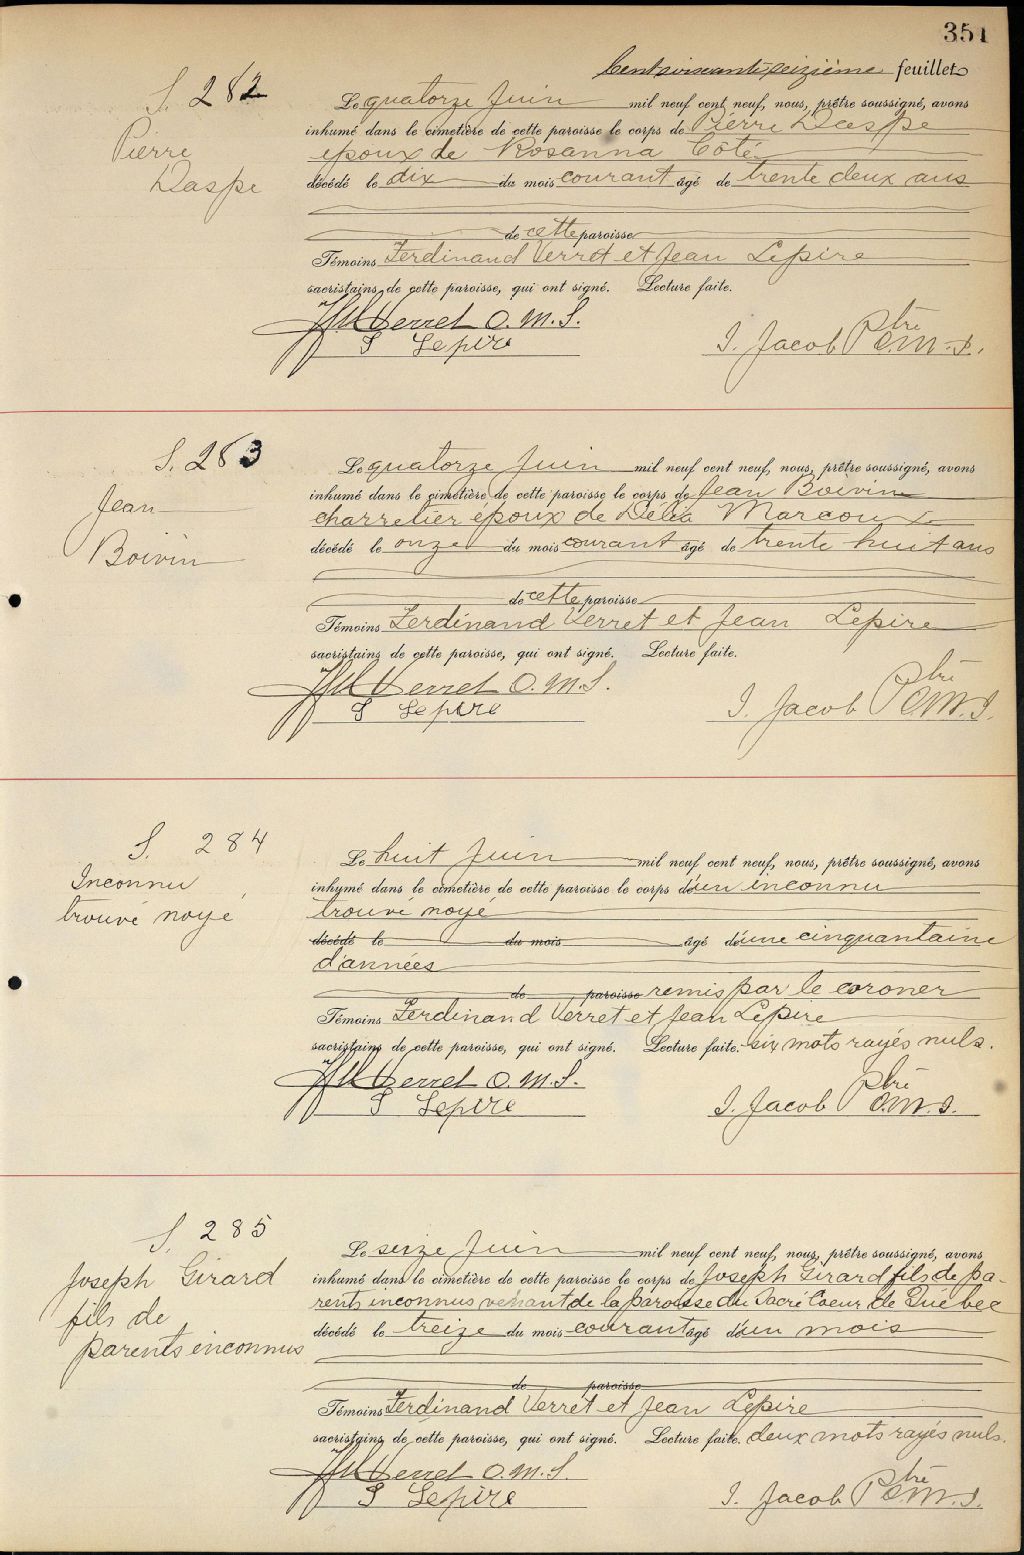 351
Cent soixante seizième feuillet
S. 282
Pierre
Daspe
Le quatorze Juin mil neuf cent neuf, nous, prêtre soussigné, avons
inhumé dans le cimetière de cette paroisse le corps de Pierre Daspe
époux de Rosanna Côté
décédé le dix du mois courant âgé de trente deux ans
de cette paroisse
Témoins Ferdinand Verret et Jean Lepire
sacristains de cette paroisse, qui ont signé. Lecture faite.
Verret O.M.I.
J Lepire
J. Jacob Ptre O.M.I.
S. 283
Jean
Boivin
Le quatorze Juin mil neuf cent neuf, nous, prêtre soussigné, avons
inhumé dans le cimetière de cette paroisse le corps de Jean Boivin
charretier époux de Délia Marcoux
décédé le onze du mois courant âgé de trente huit ans
de cette paroisse
Témoins Ferdinand Verret et Jean Lepire
sacristains de cette paroisse, qui ont signé. Lecture faite.
Verret O.M.I.
J Lepire
J. Jacob Ptre O.M.I.
S. 284
Inconnu
trouvé noyé
Le huit Juin mil neuf cent neuf, nous, prêtre soussigné, avons
inhumé dans le cimetière de cette paroisse le corps d'un inconnu
trouvé noyé
décédé le du mois âgé d'une cinquantaine
d'années
de paroisse remis par le coroner
Témoins Ferdinand Verret et Jean Lepire
sacristains de cette paroisse, qui ont signé. Lecture faite. six mots rayés nuls.
Verret O.M.I.
J Lepire
J. Jacob Ptre O.M.I.
S. 285
Joseph Girard
fils de
parents inconnus
Le seize Juin mil neuf cent neuf, nous, prêtre soussigné, avons
inhumé dans le cimetière de cette paroisse le corps de Joseph Girard fils de pa-
rents inconnus venant de la paroisse du Sacré Coeur de Québec
décédé le treize du mois courant âgé d'un mois
de paroisse
Témoins Ferdinand Verret et Jean Lepire
sacristains de cette paroisse, qui ont signé. Lecture faite. deux mots rayés nuls.
Verret O.M.I.
J Lepire
J. Jacob Ptre O.M.I.